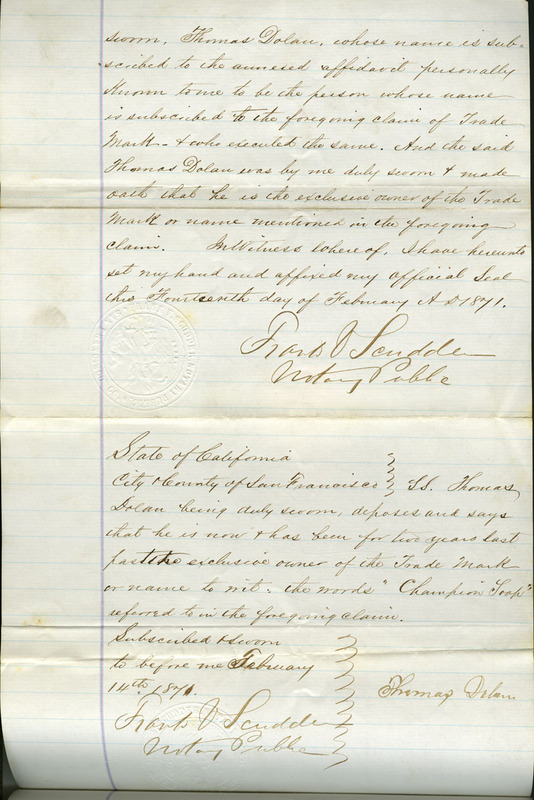 sworn, Thomas Dolan, whose name is sub-
scribed to the annexed affidavit personally
Known to me to be the person whose name
is subscribed to the foregoing claim of Trade
Mark - & who executed the same. And the said
Thomas Dolan was by me duly sworn & made
oath that he is the exclusive owner of the Trade
Mark or name mentioned in the foregoing
claim. In Witness whereof, I have hereunto
set my hand and affixed my official Seal
this Fourteenth day of February A D 1871.
Frank V Scudder
Notary Public
State of California
City & County of San Francisco } S.S. Thomas
Dolan being duly sworn, deposes and says
that he is now & has been for two years last
past the exclusive owner of the Trade Mark
or name to wit: the words "Champion Soap"
referred to in the foregoing claim.
Subscribed & sworn
to before me February
14th 1871.
Thomas Dolan
Frank V Scudder
Notary Public